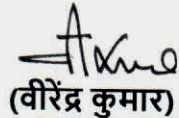 (वीरेंद्र कुमार)